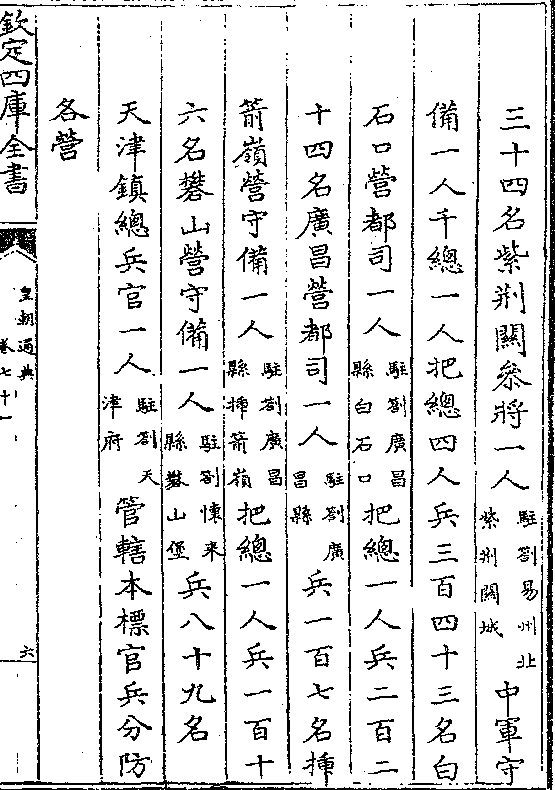 三十四名紫荆關叅將一人駐劄易州北紫荆關城中軍守
備一人千總一人把總四人兵三百四十三名白
石口營都司一人駐劄廣昌縣白石口把總一人兵二百二
十四名廣昌營都司一人駐劄廣昌縣兵一百七名揷
箭嶺營守備一人駐劄廣昌縣揷箭嶺把總一人兵一百十
六名礬山營守備一人駐劄懷來縣礬山堡兵八十九名
天津鎮總兵官一人駐劄天津府管轄本標官兵分防
各營
欽定四庫全書
皇朝通典
卷七十一
六